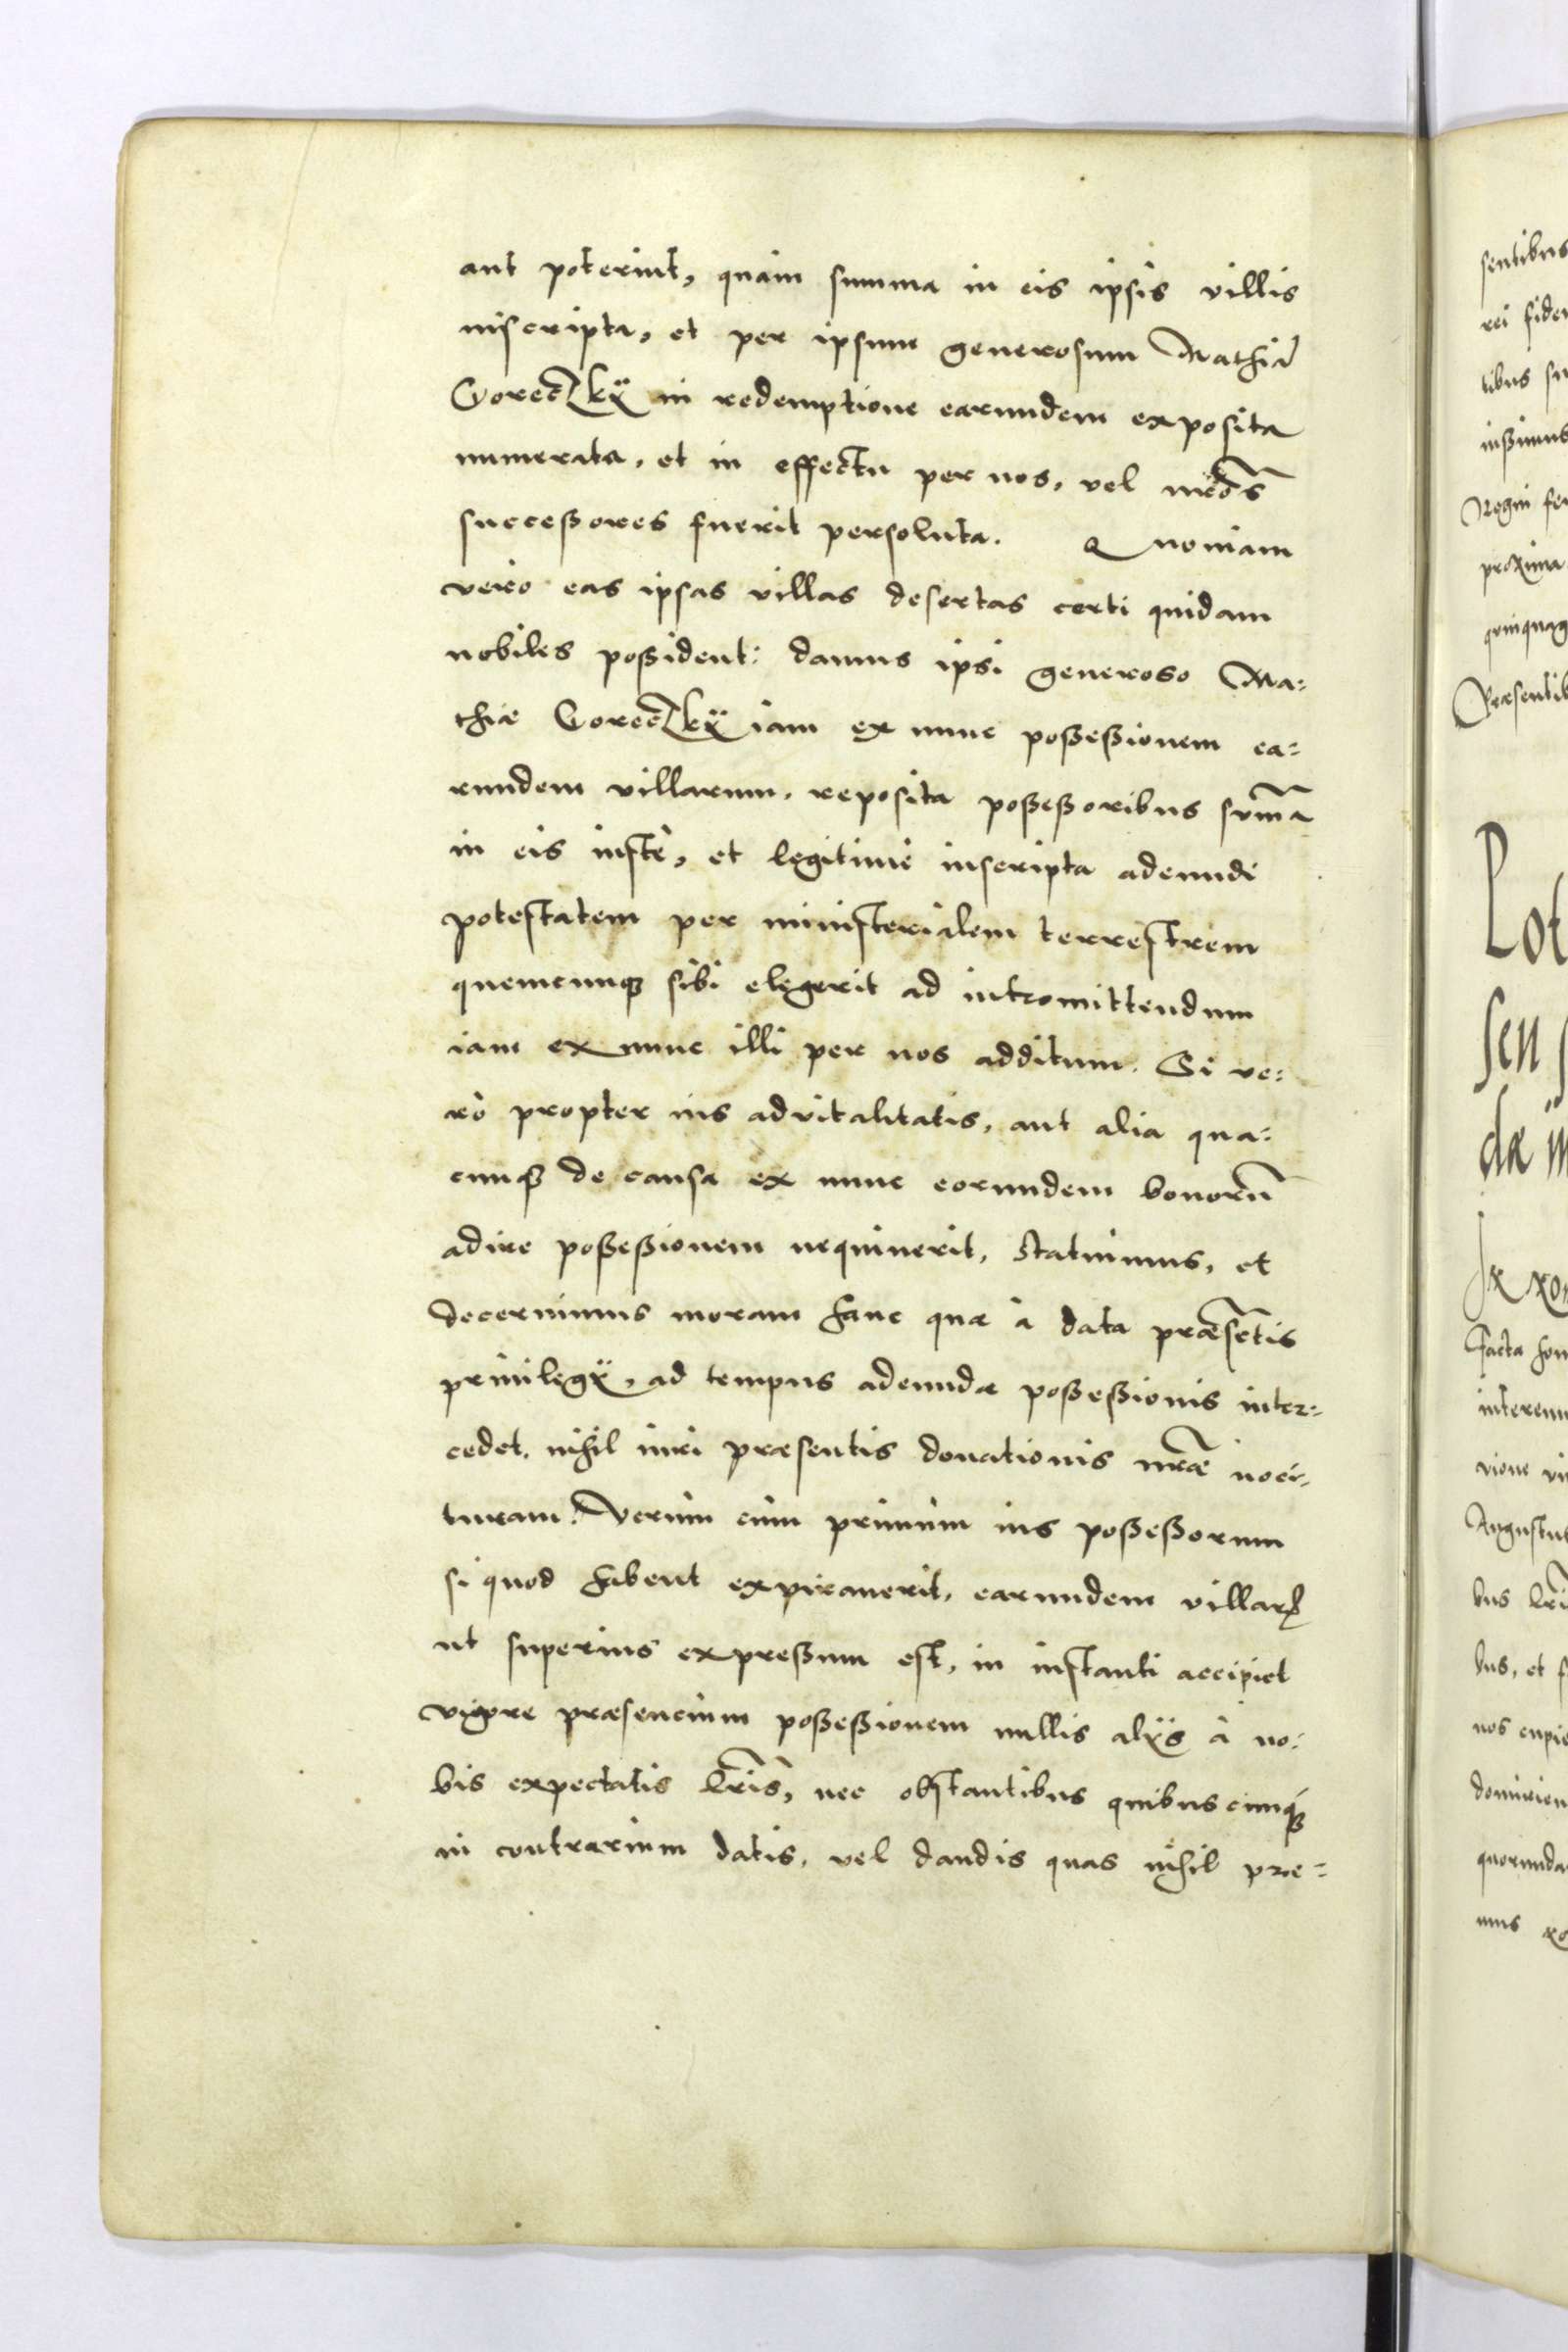 aut poterint, quàm summa in eis ipsis villis
inscripta, et per ipsum generosum Mathiã
Goreczkÿ in redemptione earundem exposita
numerata, et in effectu per nos, vel nr̃os
succeßores fuerit persoluta. Quoniam
vero eas ipsas villas desertas certi quidam
nobiles poßident: damus ipsi generoso Ma=
thiæ Goreczkÿ iam ex nunc poßeßionem ea=
rundem villarum, reposita poßeßoribus sum̃a
in eis iuste, et legitimè inscripta adeundi
potestatem per ministerialem terrestrem
quemcunqꝫ sibi elegerit ad intromittendum
iam ex nunc illi per nos additum. Si ve=
rò propter ius advitalitatis, aut alia qua=
cunqꝫ de causa ex nunc eorundem bonorũ
adire poßeßionem nequiuerit, statuimus, et
decernimus moram hanc quæ à data præsẽtis
priuilegÿ, ad tempus adeundæ poßeßionis inter=
cedet, nihil iuri præsentis donationis nr̃æ noci=
turam. Verùm cùm primùm ius poßeßorum
si quod habent expirauerit, earundem villarꝝ
ut superius expreßum est, in instanti accipiet
vigore præsencium poßeßionem nullis alÿs à no=
bis expectatis lr̃is, nec obstantibus quibuscunqꝫ
in contrarium datis, vel dandis quas nihil præ=
sentibus
rei fidem
tibus
Regni
proxima
quinquag
Præsentib
Facta
vione
Augustus
bus
bus, et
nos cupie
quorunda
mus